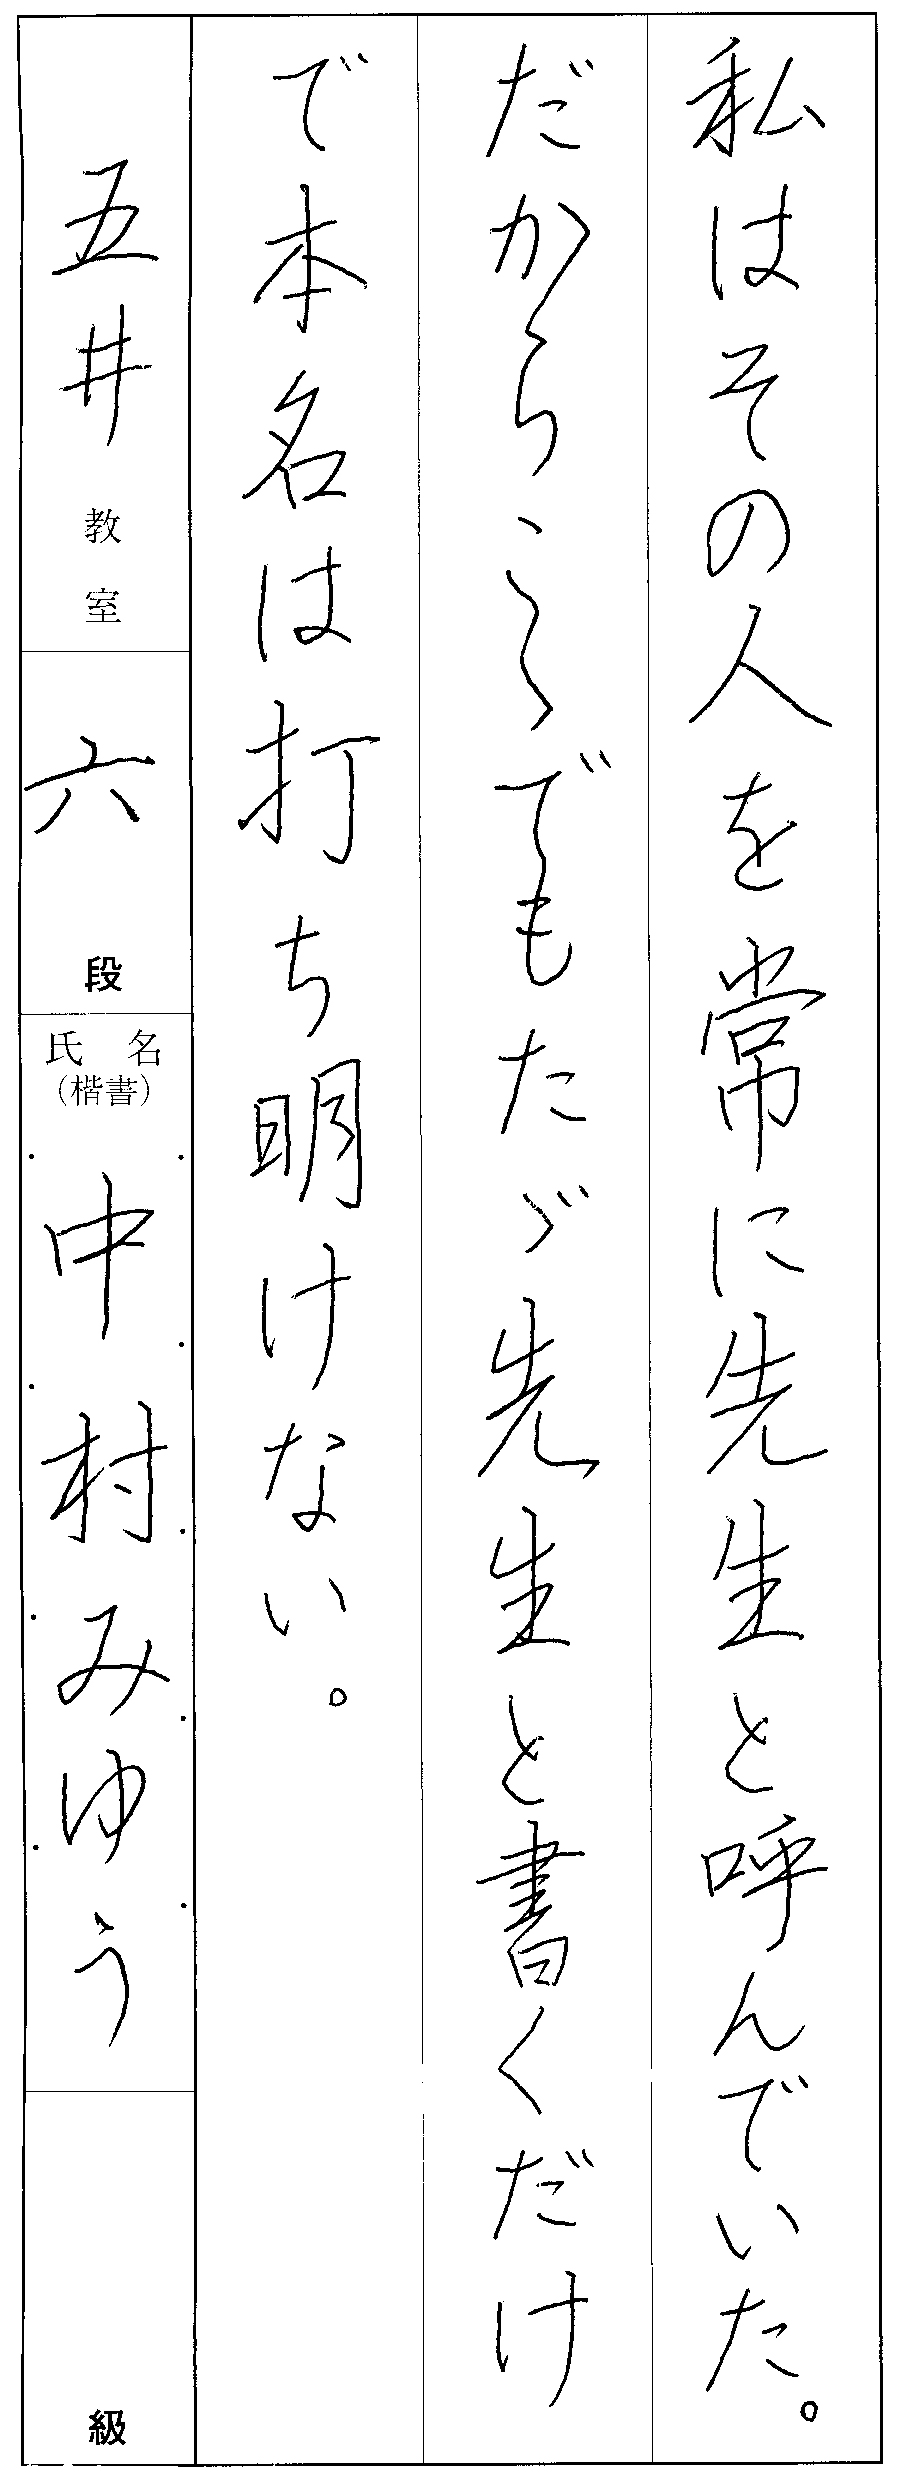 私はその人を常に先生と呼んでいた。
だからこゝでもたゞ先生と書くだけ
で本名は打ち明けない。
五井教室
六段
氏名
(楷書)
中村みゆう
級